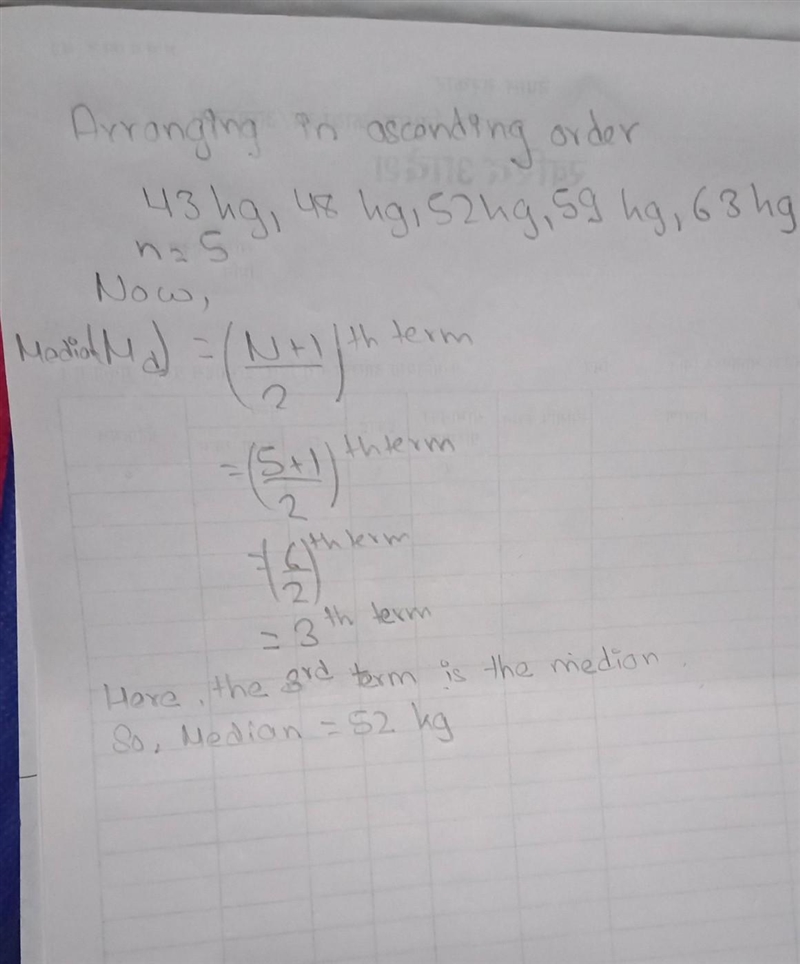 Arranging in asconding order
43 kg, 48 kg, 52 kg, 59 kg, 63 kg
n = 5
Now,
Median(Md) = (N+1/2)th term
= (5+1/2)th term
= (6/2)th term
= 3th term
Here, the 3rd term is the median.
So, Median = 52 kg